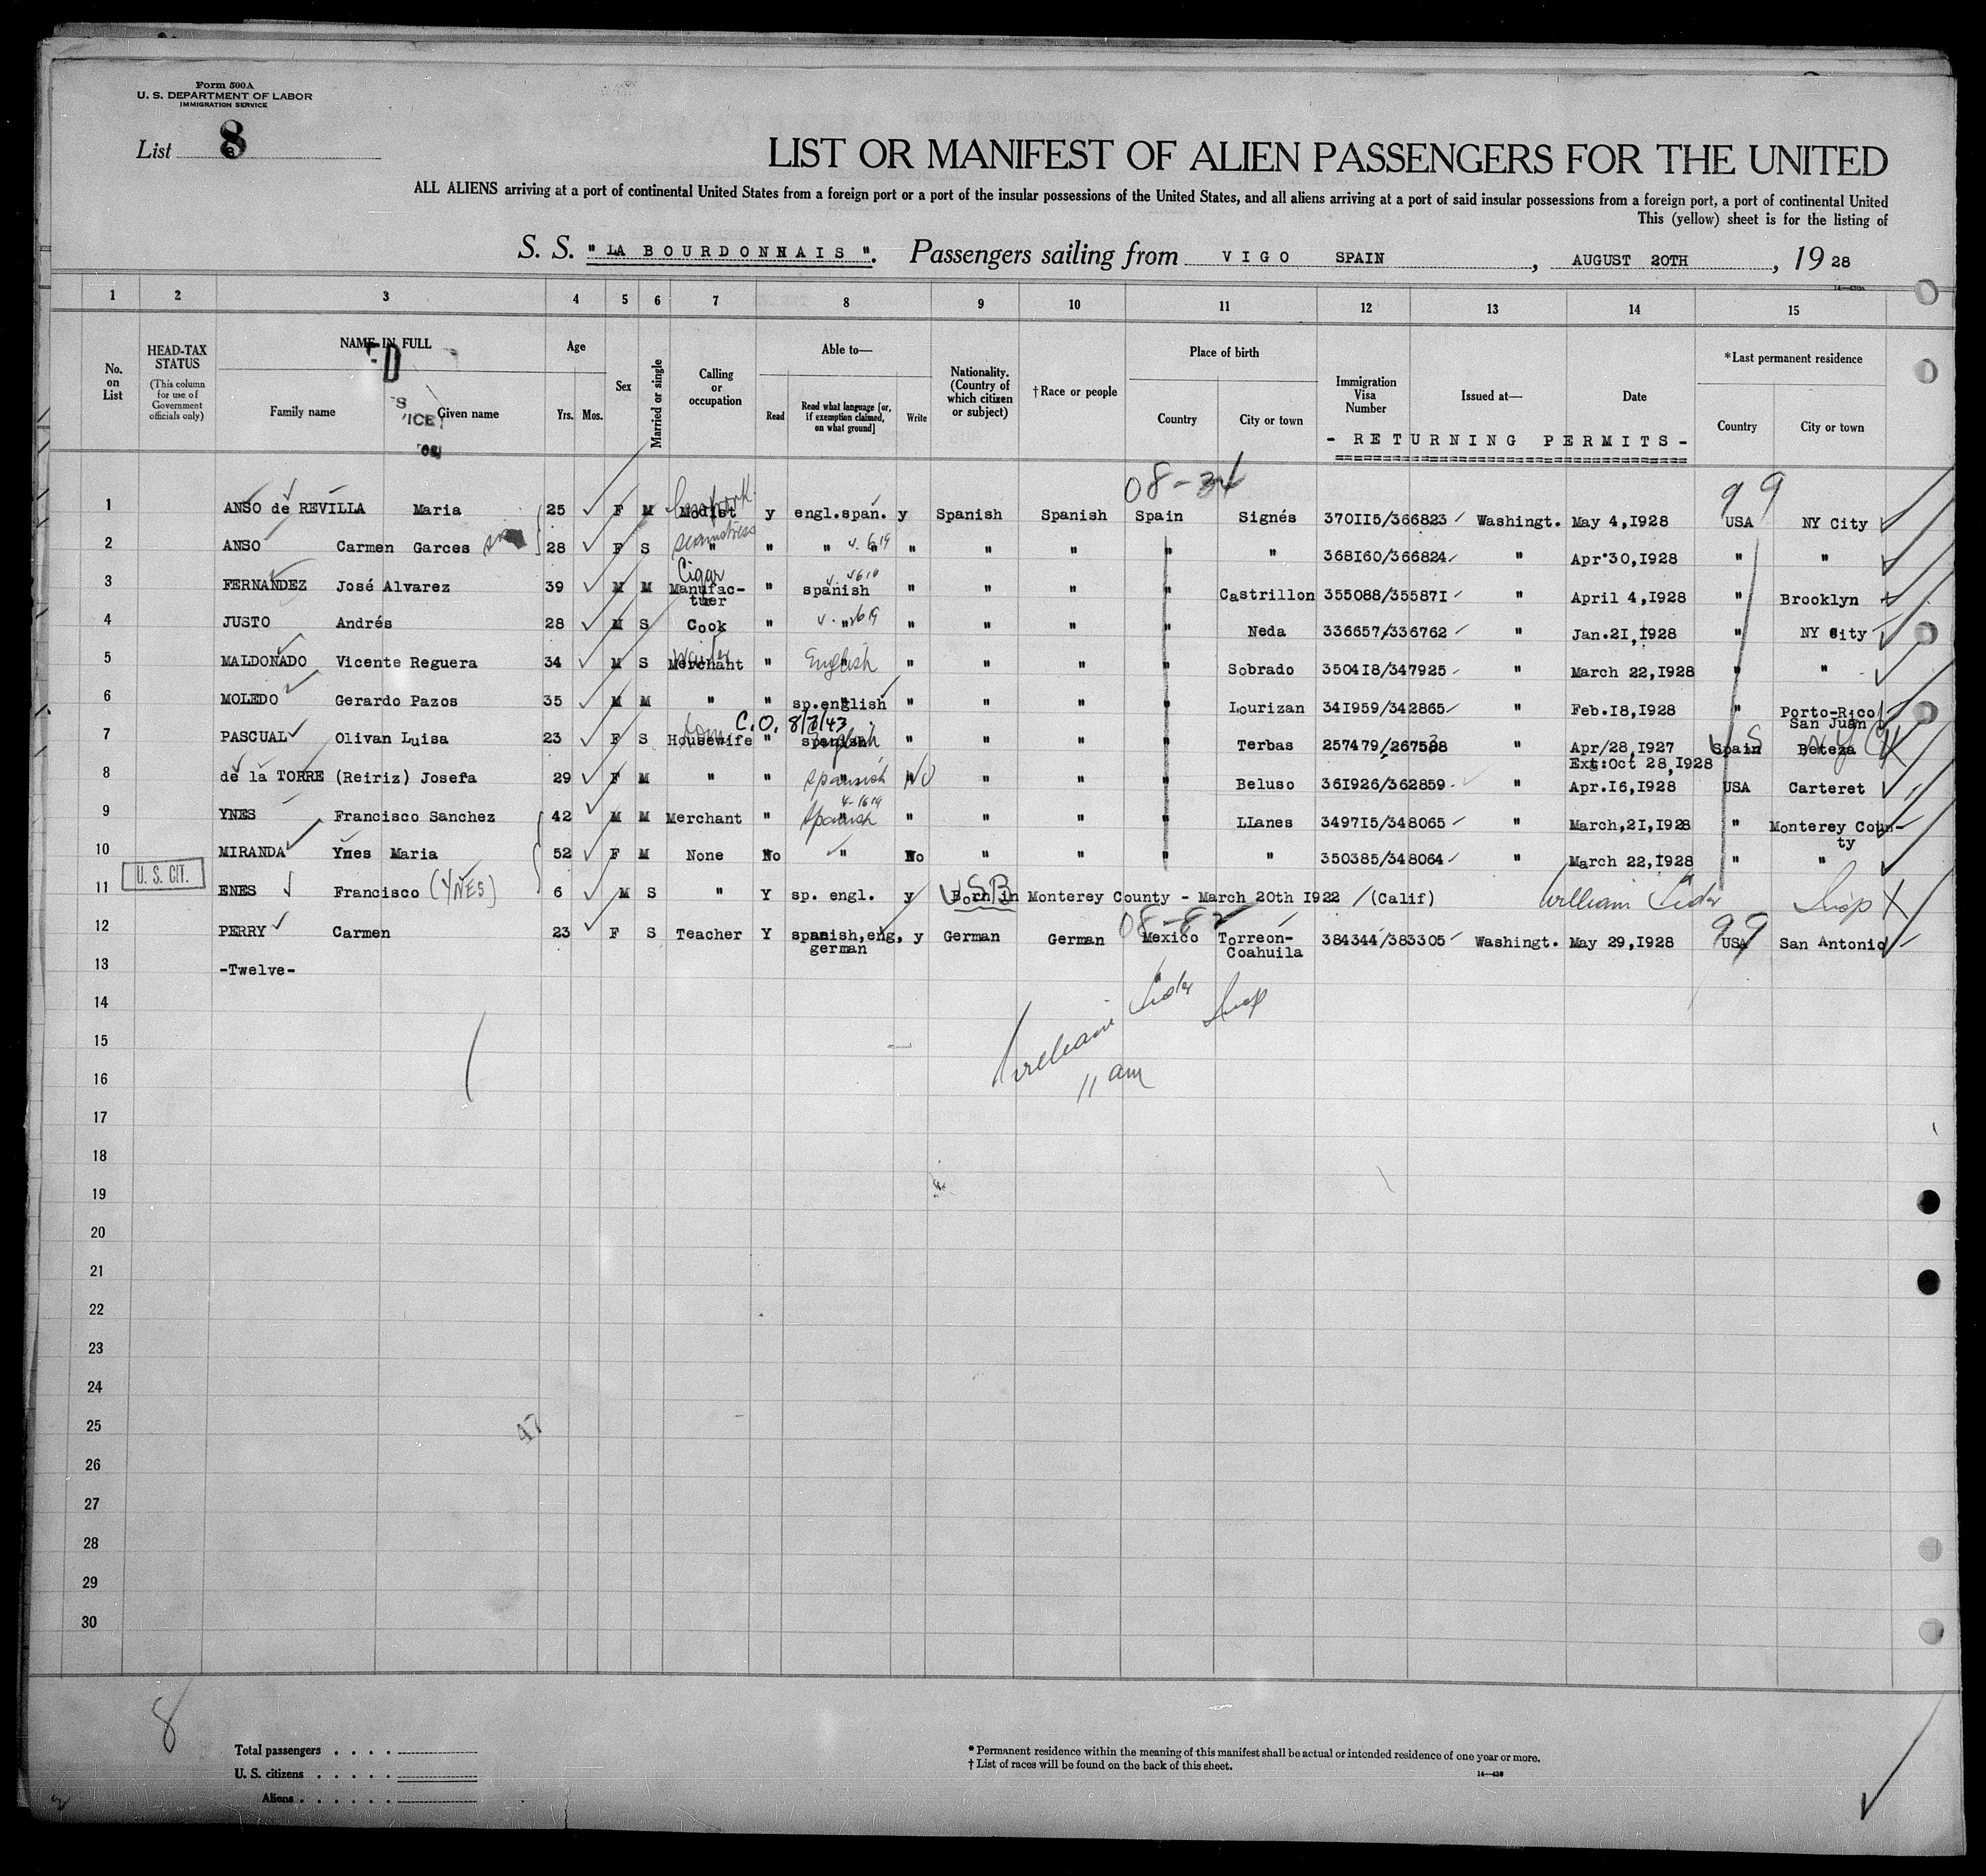 Form 500A
U. S. DEPARTMENT OF LABOR
IMMIGRATION SERVICE
List 8
LIST OR MANIFEST OF ALIEN PASSENGERS FOR THE UNITED
ALL ALIENS arriving at a port of continental United States from a foreign port or a port of the insular possessions of the United States, and all aliens arriving at a port of said insular possessions from a foreign port, a port of continental United
This (yellow) sheet is for the listing of
S. S. "LA BOURDONNAIS". Passengers sailing from VIGO SPAIN, AUGUST 20TH, 19 28
1 2 3 4 5 6 7 8 9 10 11 12 13 14 15
No. on List
HEAD-TAX STATUS (This column for use of Government officials only)
NAME IN FULL
Family name Given name
Age
Yrs. Mos.
Sex
Married or single
Calling or occupation
Able to—
Read Read what language [or, if exemption claimed, on what ground] Write
Nationality. (Country of which citizen or subject)
† Race or people
Place of birth
Country City or town
Immigration Visa Number
Issued at—
Date
*Last permanent residence
Country City or town
- RETURNING PERMITS -
08-34 99
1 ANSO de REVILLA Maria 25 F M Modist y engl.span. y Spanish Spanish Spain Signés 370115/366823 Washingt. May 4,1928 USA NY City
seamstress
2 ANSO Carmen Garces 28 F S " " " " " " " " 368160/366824 " Apr.30,1928 " "
Cigar
3 FERNANDEZ José Alvarez 39 M M Manufac-tuer " spanish " " " " Castrillon 355088/355871 " April 4,1928 " Brooklyn
4 JUSTO Andrés 28 M S Cook " " " " " " Neda 336657/336762 " Jan.21,1928 " NY City
5 MALDONADO Vicente Reguera 34 M S Merchant " English " " " " Sobrado 350418/347925 " March 22,1928 " "
6 MOLEDO Gerardo Pazos 35 M M " " sp.english " " " " Lourizan 341959/342865 " Feb.18,1928 " Porto-Rico San Juan
C.O. 8/3/43
7 PASCUAL Olivan Luisa 23 F S Housewife " spanish " " " " Terbas 257479/267588 " Apr/28,1927 Spain Beteza
Ext:Oct 28,1928
8 de la TORRE (Reiriz) Josefa 29 F M " " Spanish No " " " Beluso 361926/362859 " Apr.16,1928 USA Carteret
9 YNES Francisco Sanchez 42 M M Merchant " Spanish " " " " LLanes 349715/348065 " March,21,1928 " Monterey Coun-ty
10 MIRANDA Ynes Maria 52 F M None No " No " " " " 350385/348064 " March 22,1928 " "
U. S. CIT.
11 ENES Francisco (YNES) 6 M S " Y sp. engl. y USB Born in Monterey County - March 20th 1922 /(Calif) William Insp
08-82 99
12 PERRY Carmen 23 F S Teacher Y spanish,eng, german y German German Mexico Torreon-Coahuila 384344/383305 Washingt. May 29,1928 USA San Antonio
13 -Twelve-
14
William Insp
15
16
11 am
17
18
19
20
21
22
23
24
25
47
26
27
28
29
30
8
Total passengers
U. S. citizens
Aliens
* Permanent residence within the meaning of this manifest shall be actual or intended residence of one year or more.
† List of races will be found on the back of this sheet.
14—430